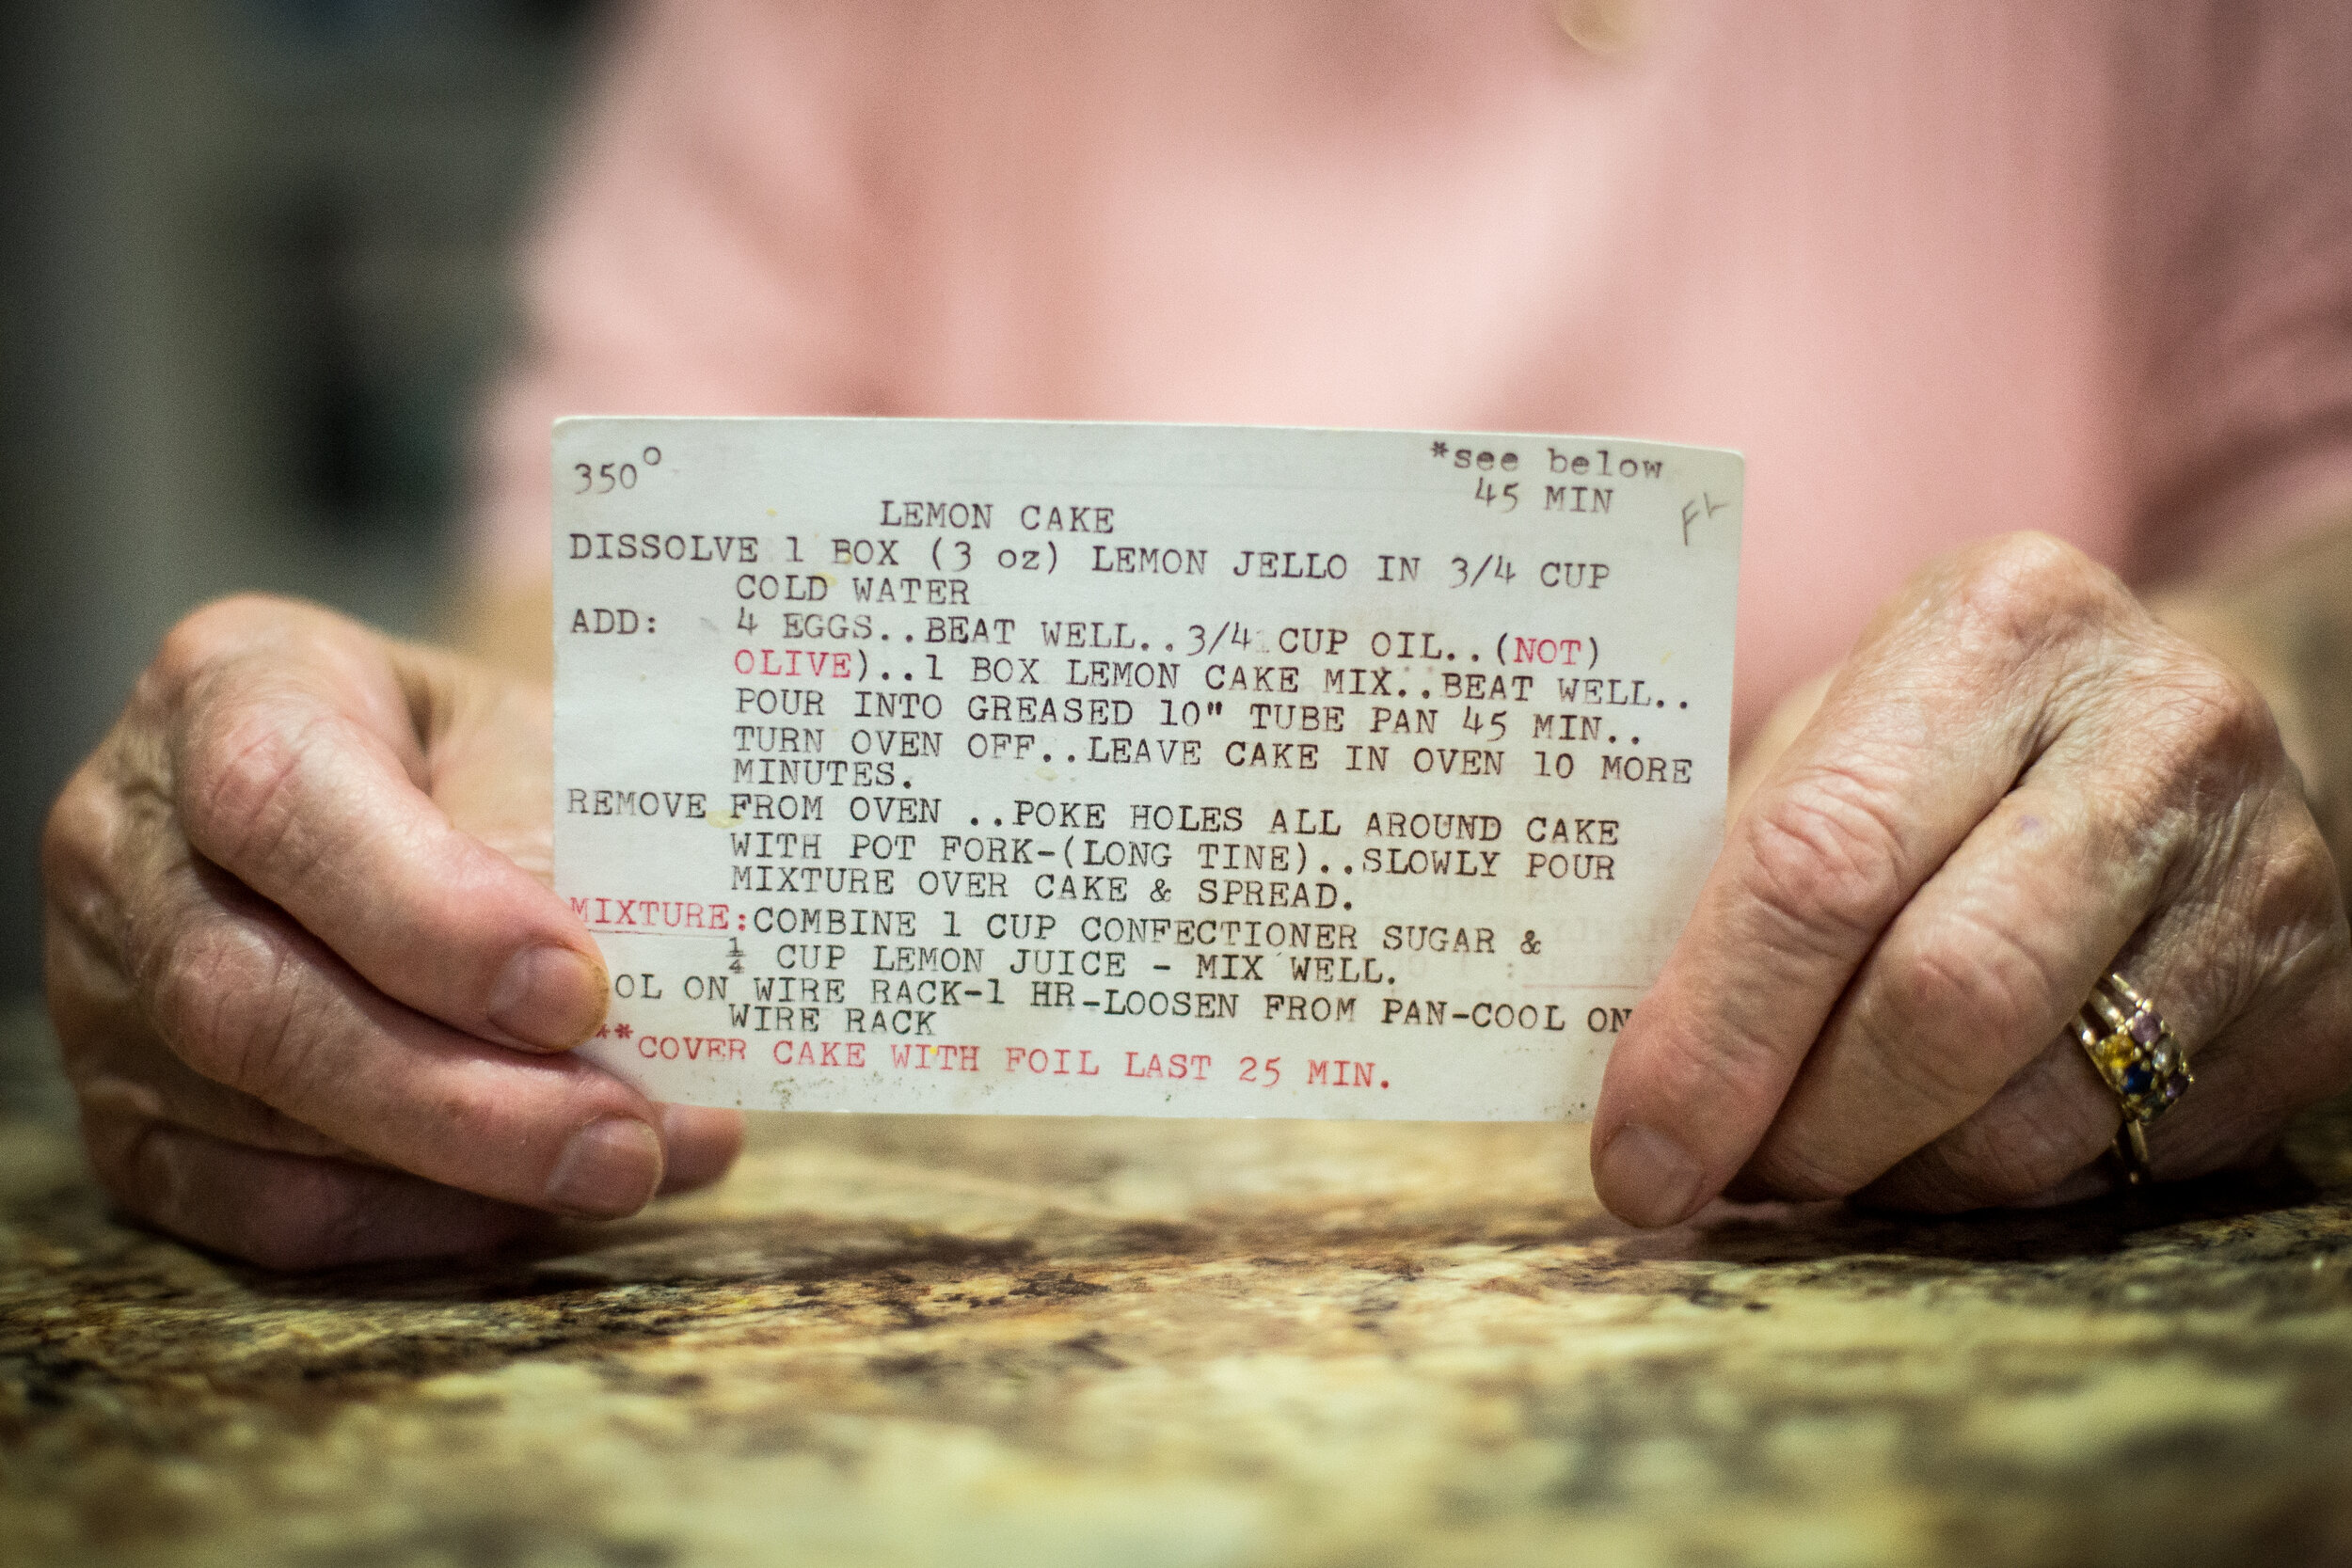 350° *see below
45 MIN
LEMON CAKE
DISSOLVE 1 BOX (3 oz) LEMON JELLO IN 3/4 CUP
COLD WATER
ADD: 4 EGGS..BEAT WELL..3/4 CUP OIL..(NOT)
OLIVE)..1 BOX LEMON CAKE MIX..BEAT WELL..
POUR INTO GREASED 10" TUBE PAN 45 MIN..
TURN OVEN OFF..LEAVE CAKE IN OVEN 10 MORE
MINUTES.
REMOVE FROM OVEN ..POKE HOLES ALL AROUND CAKE
WITH POT FORK-(LONG TINE)..SLOWLY POUR
MIXTURE OVER CAKE & SPREAD.
MIXTURE:COMBINE 1 CUP CONFECTIONER SUGAR &
¼ CUP LEMON JUICE - MIX WELL.
OL ON WIRE RACK-1 HR-LOOSEN FROM PAN-COOL ON
WIRE RACK
**COVER CAKE WITH FOIL LAST 25 MIN.